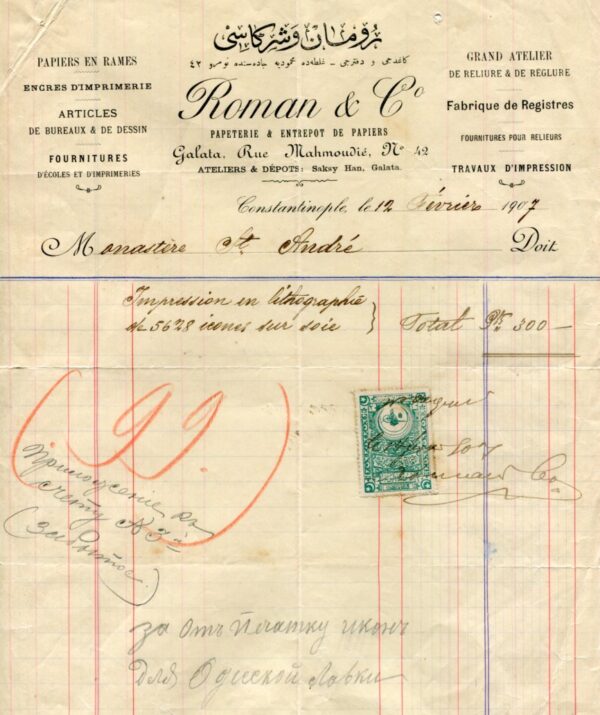 رومان وشركاسی
كاغدجی و دفترجی ـ غلطه‌ده محموديه جاده‌سنده نومرو ٤٢
Roman & Co
PAPETERIE & ENTREPOT DE PAPIERS
Galata, Rue Mahmoudié, No 42
ATELIERS & DÉPOTS: Saksy Han, Galata.
PAPIERS EN RAMES
ENCRES D'IMPRIMERIE
ARTICLES
DE BUREAUX & DE DESSIN
FOURNITURES
D'ÉCOLES ET D'IMPRIMERIES
GRAND ATELIER
DE RELIURE & DE RÉGLURE
Fabrique de Registres
FOURNITURES POUR RELIEURS
TRAVAUX D'IMPRESSION
Constantinople, le 12 Février 1907
Monastère St. André Doit
Impression en lithographie
de 5628 icones sur soie } Total Ptr. 300 —
Co
(99.)
Приложение къ
счету № 3й
(забытое.)
за отъ Печатку иконъ
для Одесской Лавки